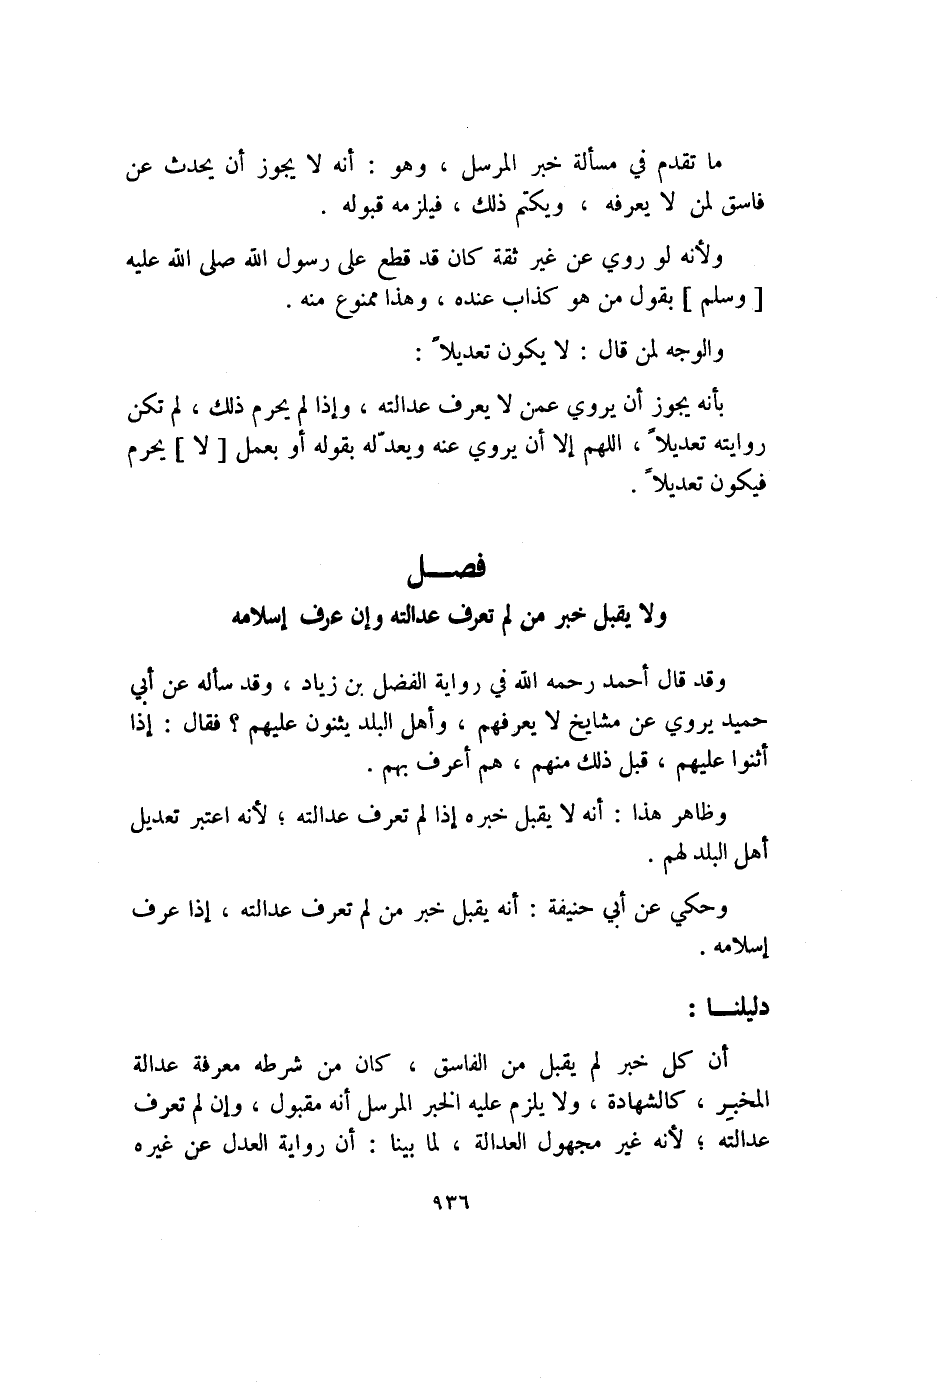 ما تقدم في مسألة خبر المرسل ، وهو : أنه لا يجوز أن يحدث عن
فاسق لمن لا يعرفه ، ويكتم ذلك ، فيلزمه قبوله .
ولأنه لو روي عن غير ثقة كان قد قطع على رسول الله صلى الله عليه
[ وسلم ] بقول من هو كذاب عنده ، وهذا ممنوع منه .
والوجه لمن قال : لا يكون تعديلاً :
بأنه يجوز أن يروي عمن لا يعرف عدالته ، وإذا لم يحرم ذلك ، لم تكن
روايته تعديلاً ، اللهم إلا أن يروي عنه ويعدّله بقوله أو بعمل [ لا ] يحرم
فيكون تعديلاً .
فصـــل
ولا يقبل خبر من لم تعرف عدالته وإن عرف إسلامه
وقد قال أحمد رحمه الله في رواية الفضل بن زياد ، وقد سأله عن أبي
حميد يروي عن مشايخ لا يعرفهم ، وأهل البلد يثنون عليهم ؟ فقال : إذا
أثنوا عليهم ، قبل ذلك منهم ، هم أعرف بهم .
وظاهر هذا : أنه لا يقبل خبره إذا لم تعرف عدالته ؛ لأنه اعتبر تعديل
أهل البلد لهم .
وحكي عن أبي حنيفة : أنه يقبل خبر من لم تعرف عدالته ، إذا عرف
إسلامه .
دليلنـــا :
أن كل خبر لم يقبل من الفاسق ، كان من شرطه معرفة عدالة
المخبِر ، كالشهادة ، ولا يلزم عليه الخبر المرسل أنه مقبول ، وإن لم تعرف
عدالته ؛ لأنه غير مجهول العدالة ، لما بينا : أن رواية العدل عن غيره
٩٣٦